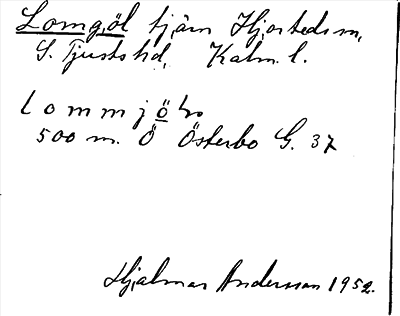 Lomgöl tjärn Hjorteds sn,
S. Tjusts hd, Kalm. l.
lommjö̲ln
500 m. Ö Österbo G. 37
Hjalmar Andersson 1952.